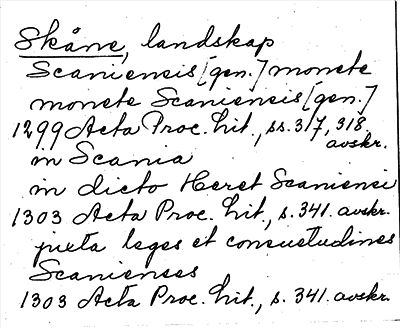 Skåne, landskap
Scaniensis [gen.] monete
monete Scaniensis [gen.]
1299 Acta Proc. Lit., ss. 317, 318
avskr.
in Scania
in dicto Heret Scaniensi
1303 Acta Proc. Lit., s. 341. avskr.
juxta leges et consuetudines
Scanienses
1303 Acta Proc. Lit., s. 341. avskr.